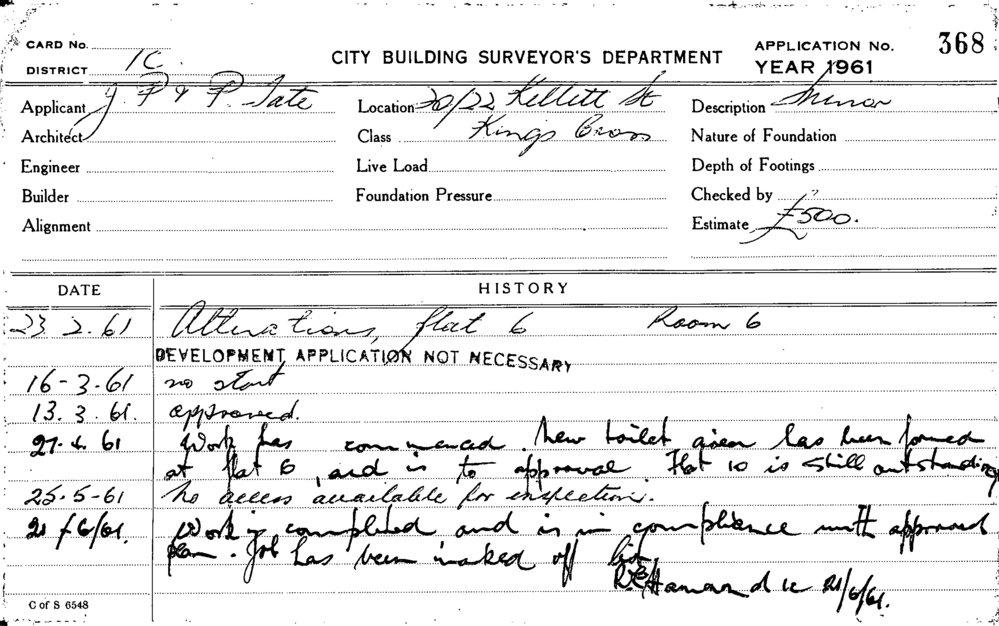 CARD No.
DISTRICT 1C
CITY BUILDING SURVEYOR'S DEPARTMENT
APPLICATION No. 368
YEAR 1961
Applicant J. P & P. Tate
Location 20/22 Kellett St
Description Minor
Architect
Class Kings Cross
Nature of Foundation
Engineer
Live Load
Depth of Footings
Builder
Foundation Pressure
Checked by
Alignment
Estimate £500.
DATE
HISTORY
23 2.61 Alterations, flat 6 Room 6
DEVELOPMENT APPLICATION NOT NECESSARY
16-3-61 no start
13.3.61. approved.
27.4.61 Work has commenced. New toilet has been formed
at flat 6, and is to approval Flat 10 is still outstanding
25-5-61 No access available for inspection.
21/6/61. Work is completed and is in compliance with approved
plan. Job has been marked off
21/6/61.
C of S 6548